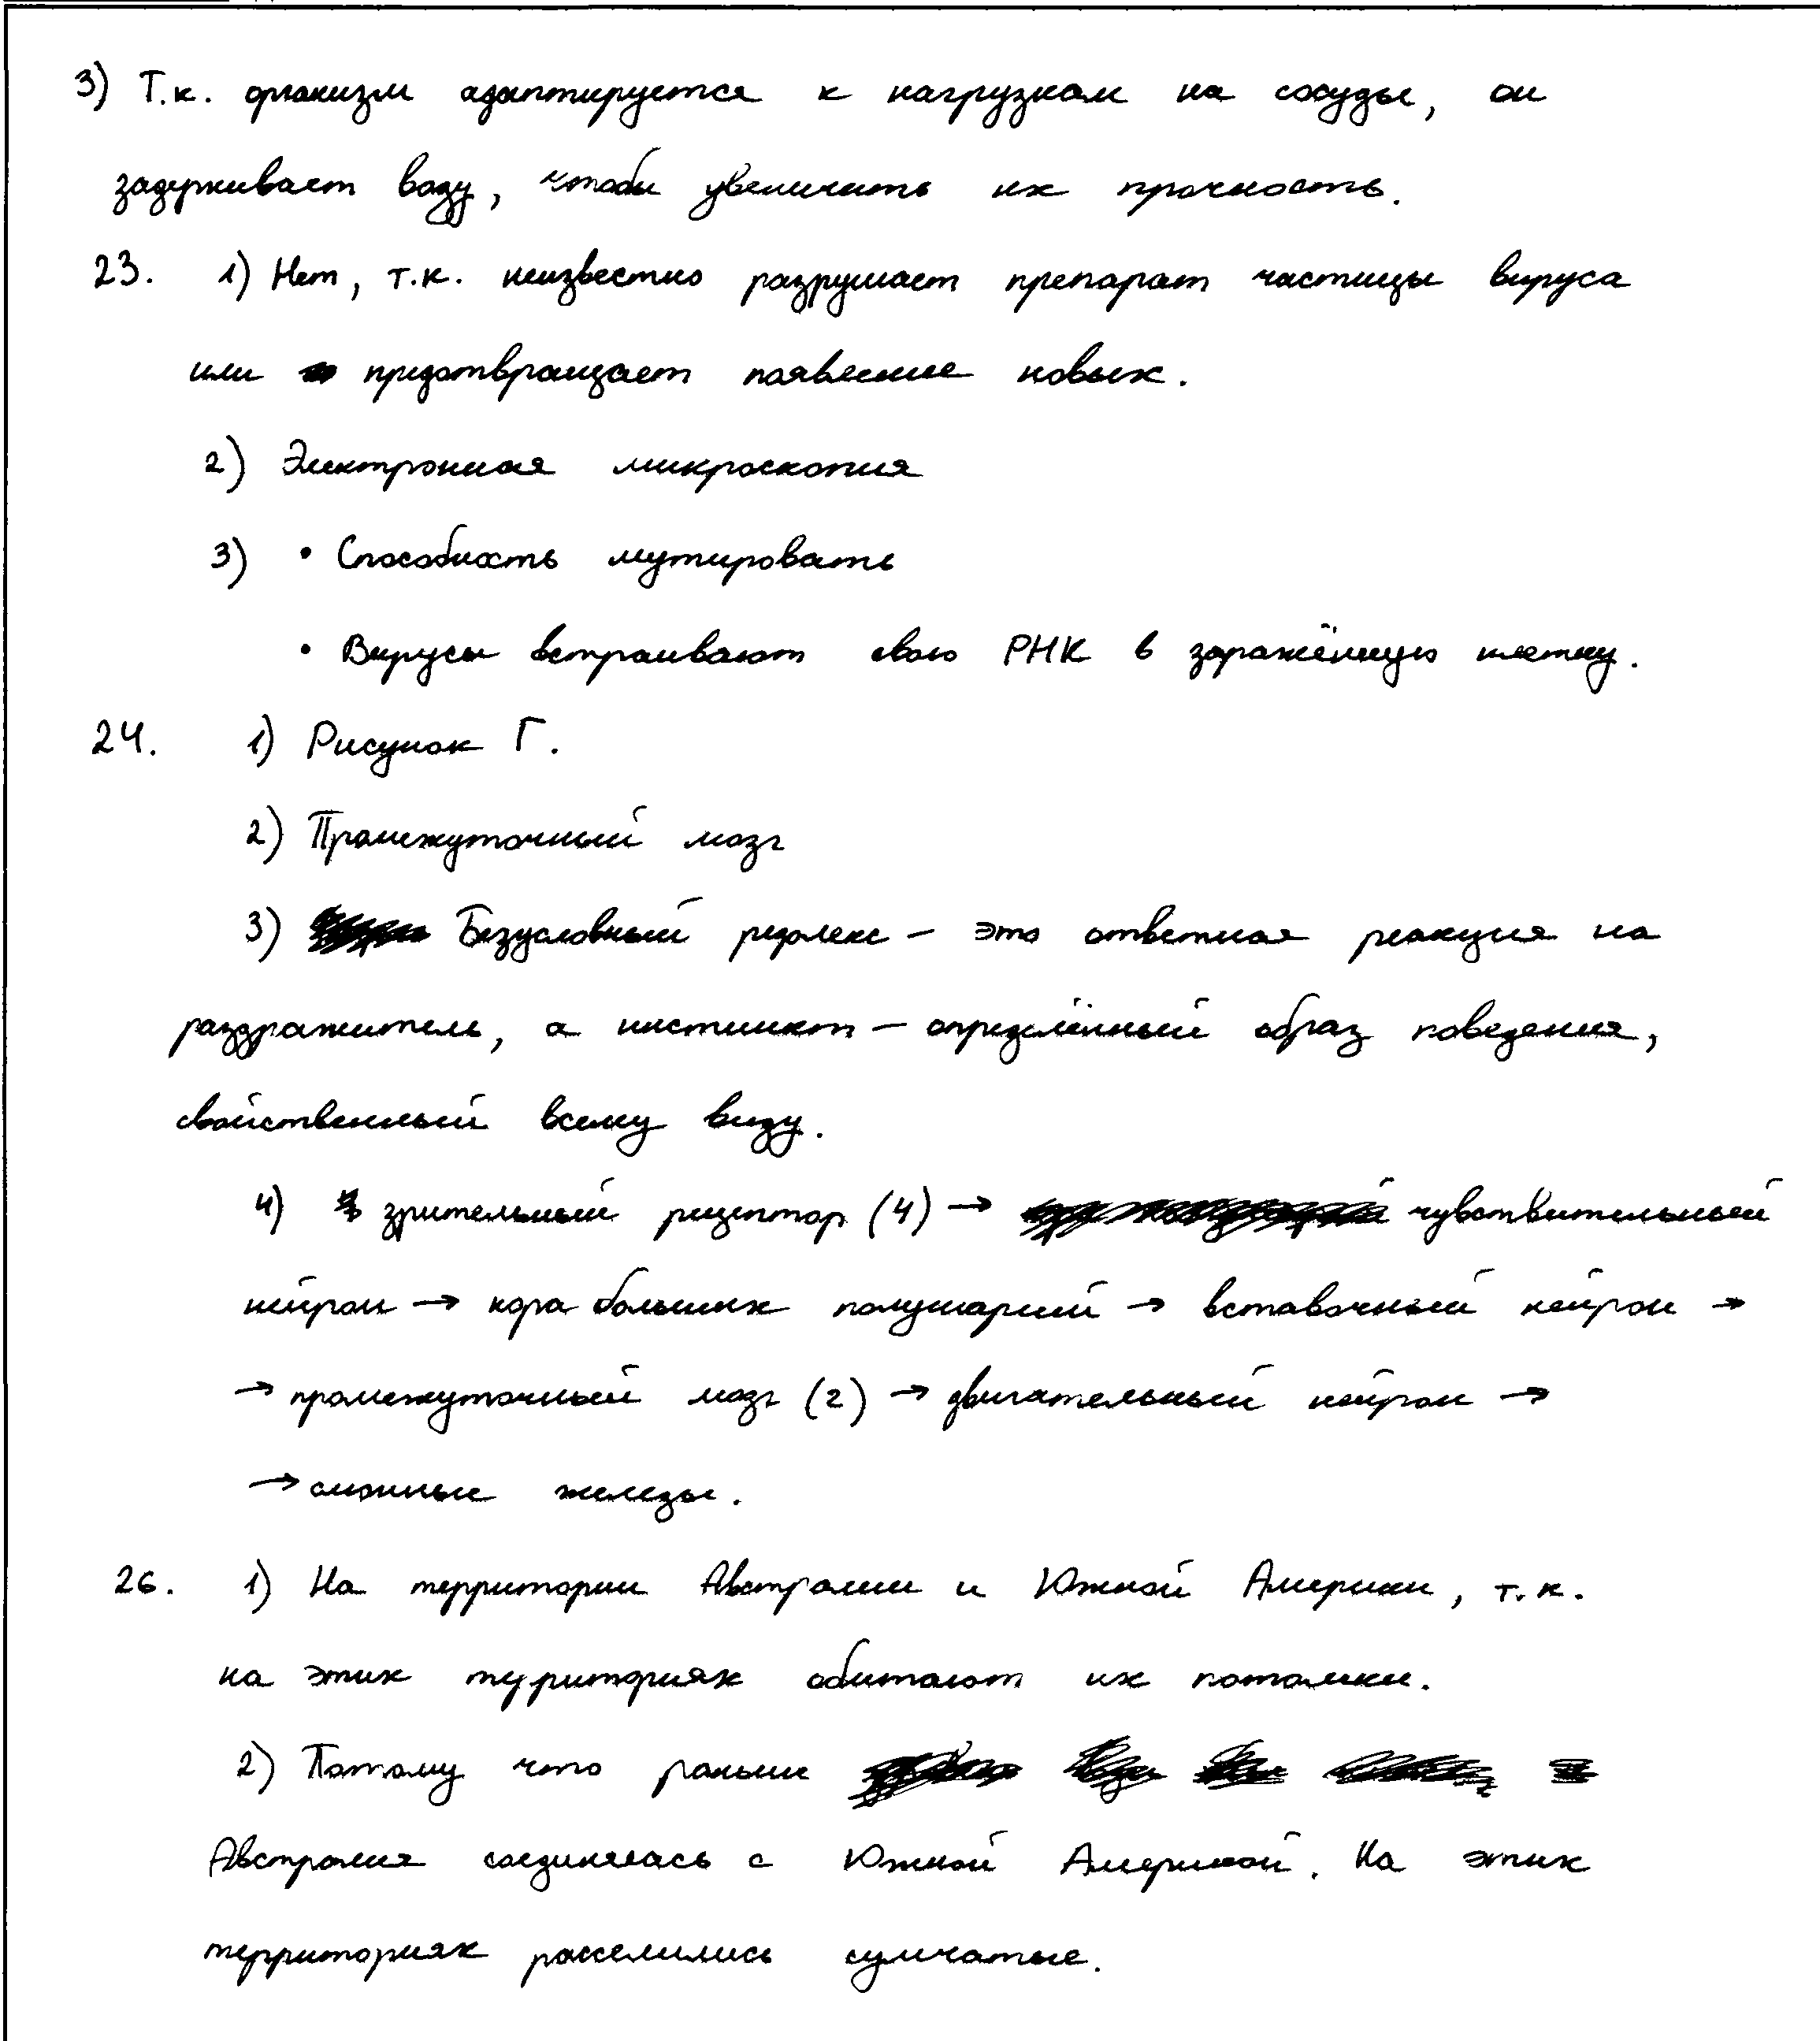 3) Т.к. организм адаптируется к нагрузкам на сосуды, он
задерживает воду, чтобы увеличить их прочность.
23. 1) Нет, т.к. неизвестно разрушает препарат частицы вируса
или предотвращает появление новых.
2) Электронная микроскопия
3) • Способность мутировать
• Вирусы встраивают свою РНК в заражённую клетку.
24. 1) Рисунок Г.
2) Промежуточный мозг
3) Безусловный рефлекс – это ответная реакция на
раздражитель, а инстинкт – определённый образ поведения,
свойственный всему виду.
4) зрительный рецептор (4) → чувствительный
нейрон → кора больших полушарий → вставочный нейрон →
→ промежуточный мозг (2) → двигательный нейрон →
→ слюнные железы.
26. 1) На территории Австралии и Южной Америки, т.к.
на этих территориях обитают их потомки.
2) Потому что раньше
Австралия соединялась с Южной Америкой. На этих
территориях расселились сумчатые.